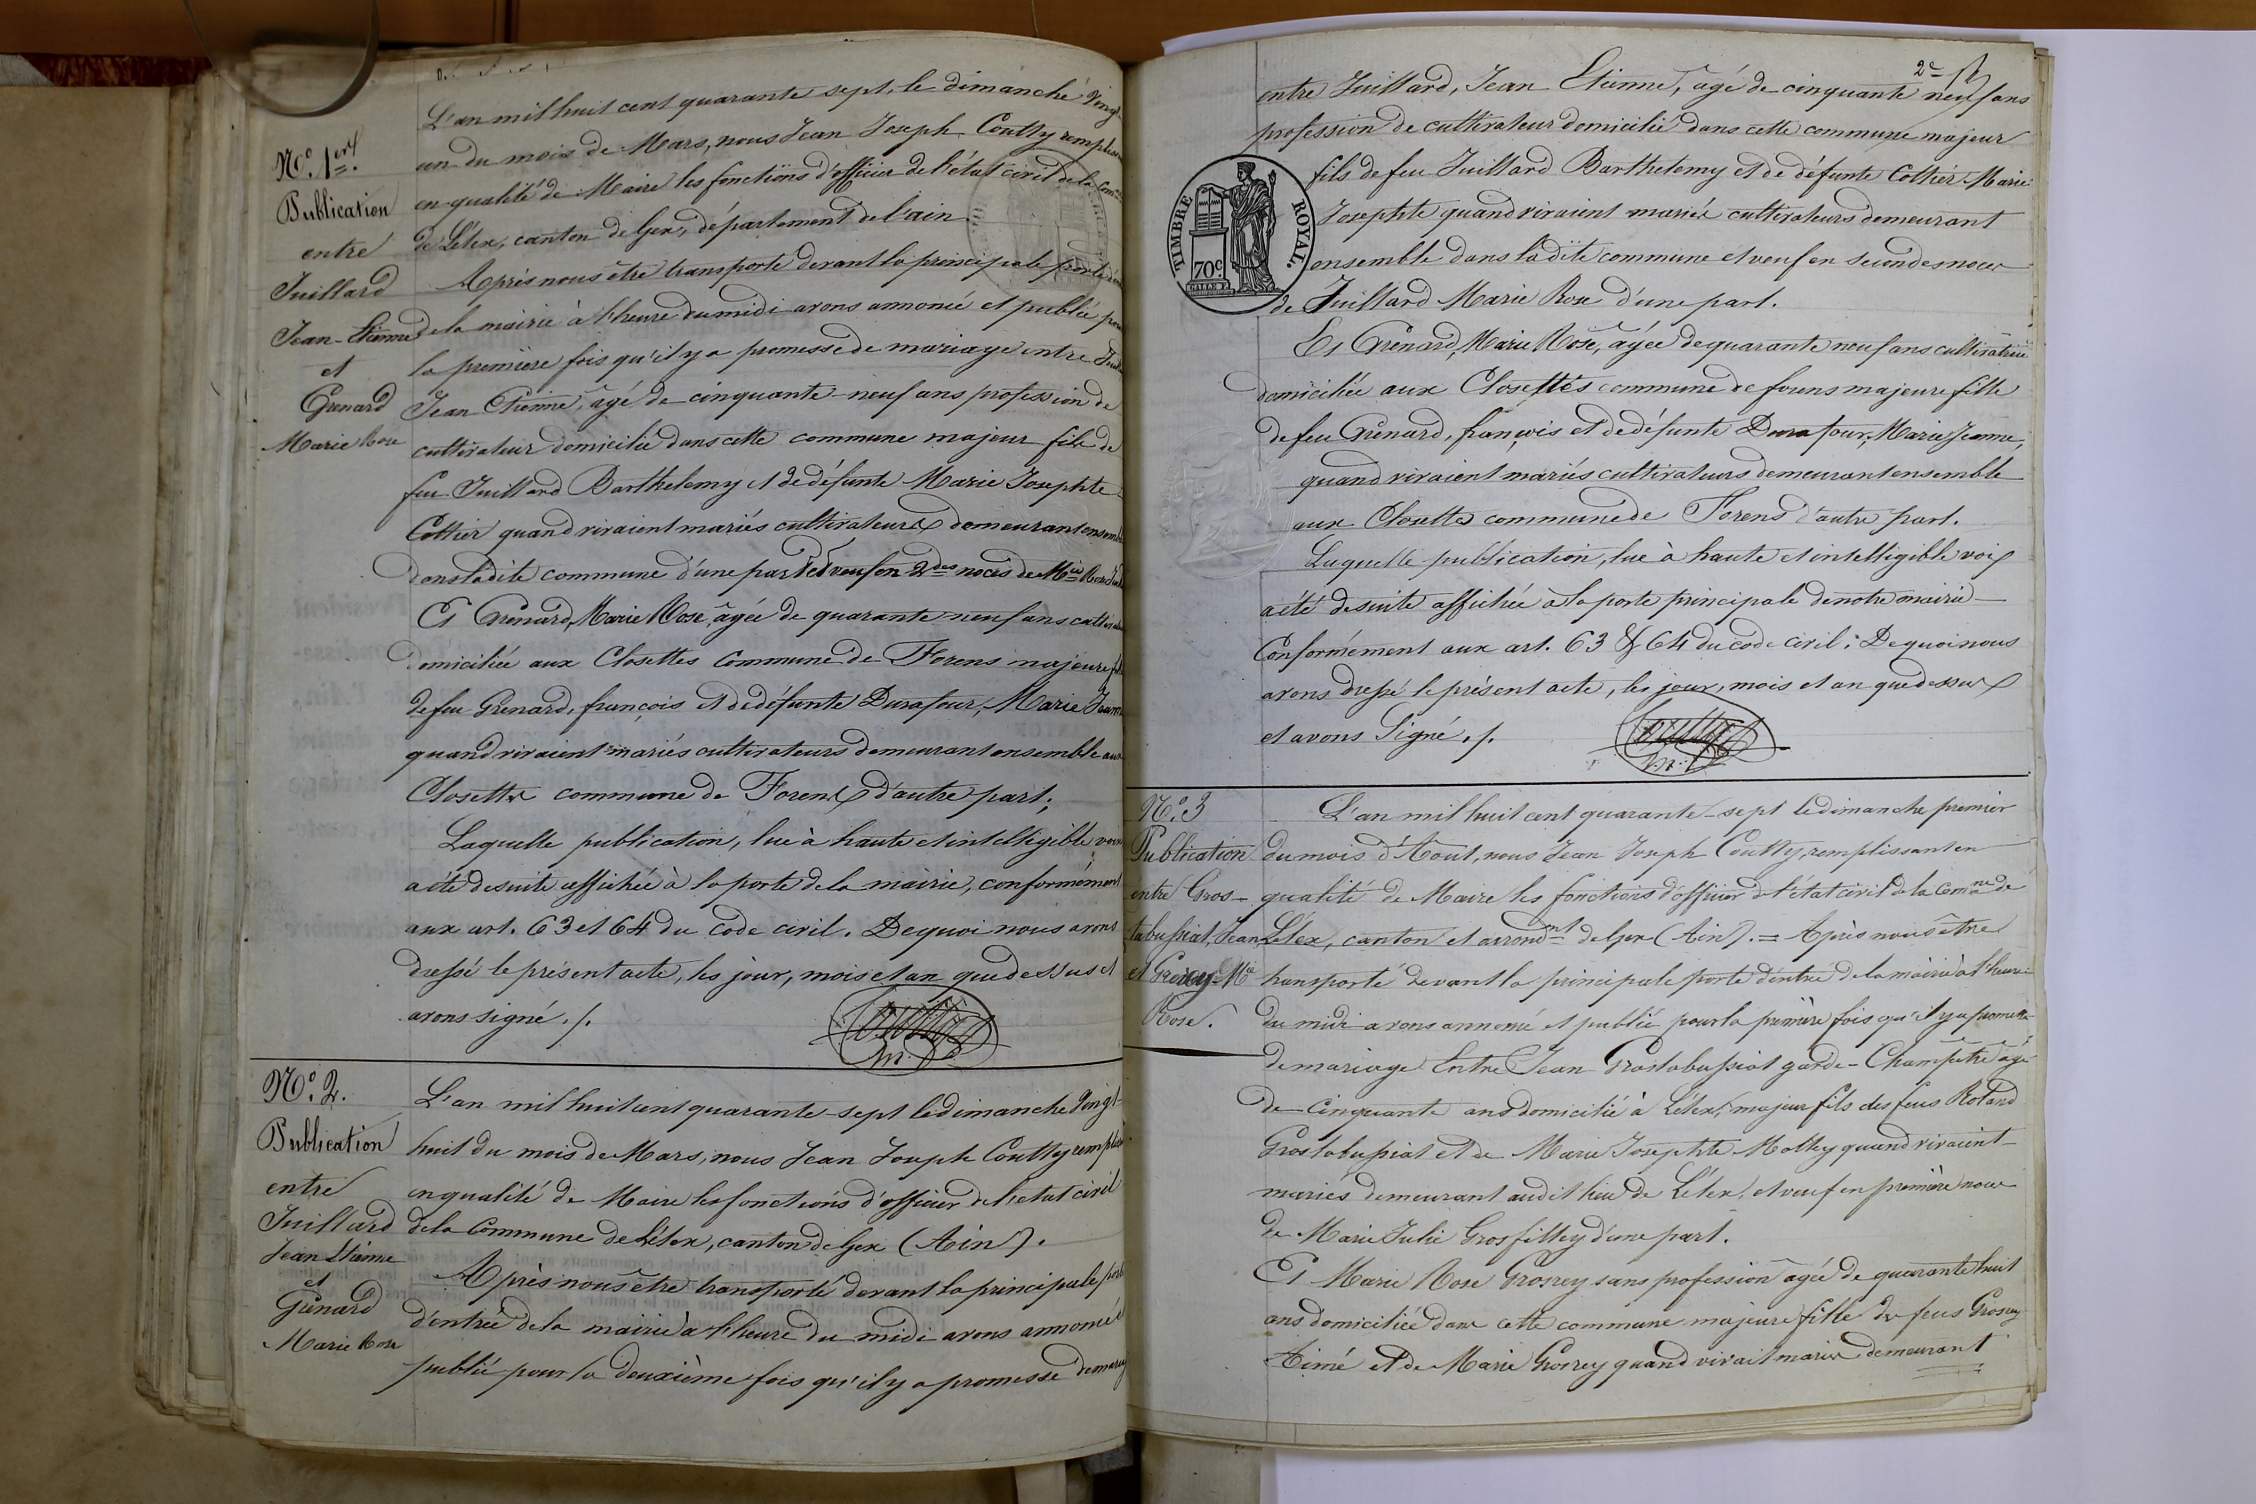 N.º 1er.
Publication
entre
Juillard
Jean-Etienne
et
Grenard
Marie Rose
L'an mil huit cent quarante sept, le dimanche vingt
un du mois de Mars, nous Jean Joseph Coutty
en qualité de Maire les fonctions d'officier de l'état civil de la
de Lélex, canton de Gex, département de l'ain
Après nous être transporté devant la principale porte
de la mairie à l'heure du midi avons annoncé et publié pour
la première fois qu'il y a promesse de mariage entre
Jean Etienne, agé de cinquante-neuf ans profession de
cultivateur domicilié dans cette commune majeur fils de
feu Juillard Barthelemy et de défunte Marie Josephte
Cottier quand vivaient mariés cultivateurs demeurant
dans ladite commune d'une part et veuf en 2des noces de Mie Rose
Et Grénard, Marie Rose, âgée de quarante neuf ans
domiciliée aux Closettes Commune de Forens majeure
de feu Grenard, françois et de défunte Durafour, Marie Jeanne
quand vivaient mariés cultivateurs demeurant ensemble aux
Closettes commune de Forens d'autre part;
Laquelle publication, lue à haute et intelligible voix
a été de suite affichée à la porte de la mairie, conformément
aux art. 63 et 64 du Code civil. De quoi nous avons
dressé le présent acte, les jour, mois et an que dessus et
avons signé ./.
Coutty
N.º 2.
Publication
entre
Juillard
Jean Etienne
et
Grénard
Marie Rose
L'an mil huit cent quarante-sept le dimanche vingt-
huit du mois de Mars, nous Jean Joseph Coutty
en qualité de Maire les fonctions d'officier de l'état civil
de la Commune de Lélex, canton de Gex (Ain).
Après nous être transporté devant la principale porte
d'entrée de la mairie à l'heure du midi avons annoncé
publié pour la deuxième fois qu'il y a promesse
2e
entre Juillard, Jean Etienne, agé de cinquante neuf ans
profession de cultivateur domicilié dans cette commune majeur
fils de feu Juillard Barthelemy et de défunte Cottier Marie
Josephte quand vivaient mariés cultivateurs demeurant
ensemble dans ladite commune et veuf en secondes noces
de Juillard Marie Rose d'une part.
TIMBRE ROYAL.
70c.
Et Grénard, Marie Rose, âgée de quarante neuf ans cultivatrice
domiciliée aux Closettes commune de forens majeure fille
de feu Grénard, françois et de défunte Durafour, Marie Jeanne,
quand vivaient mariés cultivateurs demeurant ensemble
aux Closettes commune de Forens d'autre part.
Laquelle publication, lue à haute et intelligible voix
a été de suite affichée à la porte principale de notre mairie
Conformément aux art. 63 & 64 du code civil. De quoi nous
avons dressé le présent acte, les jour, mois et an que dessus
et avons signé ./.
Coutty
N.º 3
Publication
entre Gros-
tabussiat, Jean
et Grosrey Mie
Rose.
L'an mil huit cent quarante-sept le dimanche premier
du mois d'Aout, nous Jean Joseph Coutty, remplissant en
qualité de Maire les fonctions d'officier de l'état civil de la Comne de
Lélex, canton et arrondmt de Gex (Ain). = Après nous être
transporté devant la principale porte d'entrée de la mairie à l'heure
du midi avons annoncé et publié pour la première fois qu'il y a promesse
de mariage Entre Jean Grostabussiat garde-Champêtre âgé
de Cinquante ans domicilié à Lélex, majeur fils des feus Roland
Grostabussiat et de Marie Josephte Molley quand vivaient
mariés demeurant audit lieu de Lélex, et veuf en première noce
de Marie Julie Grosfilley d'une part.
Et Marie Rose Grosrey sans profession âgée de quarante huit
ans domiciliée dans cette commune majeure fille de feus Grosrey
Aimé et de Marie Grosrey quand vivait mariés demeurant